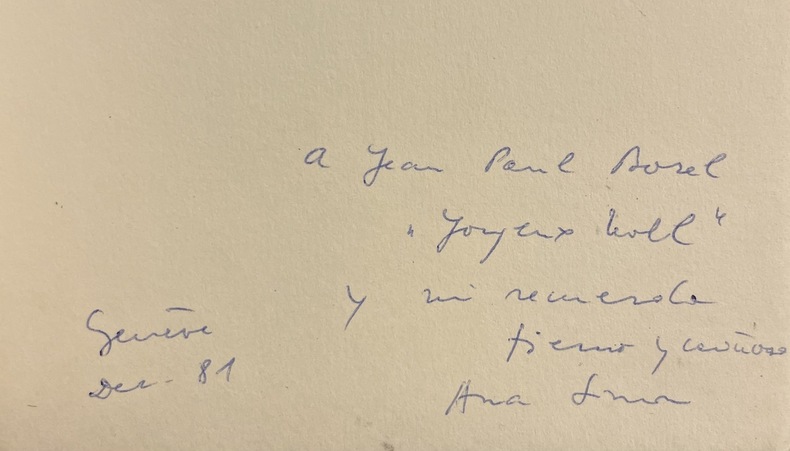 a Jean Paul Borel
"Joyeux Noël"
y mi recuerdo
tierno y cariñoso
Ana
Genève
Dec. 81